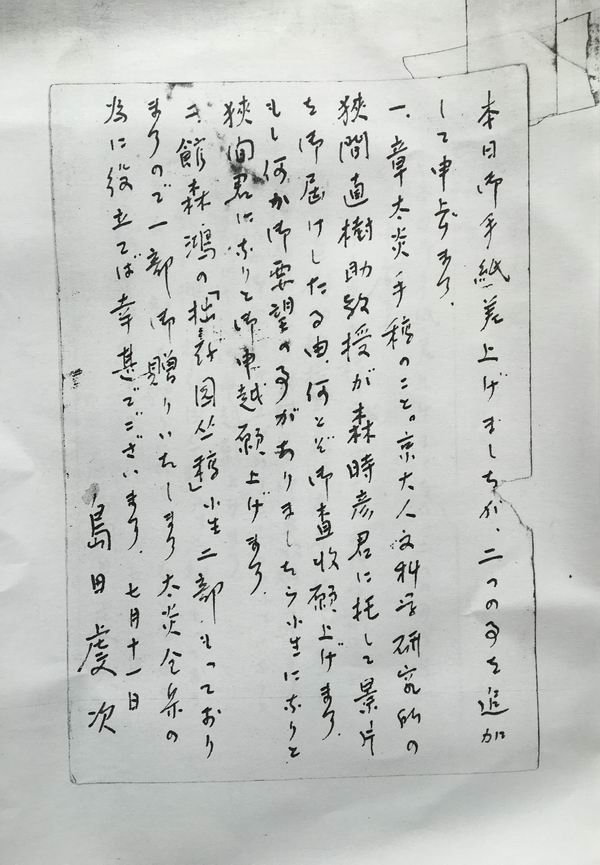 本日御手紙差上げましたが、二つの事を追加
して申上げます。
一、章太炎手稿のこと。京大人文科学研究所の
狭間直樹助教授が森時彦君に托して景片
を御届けしたる由、何とぞ御査收願上げます。
もし何か御要望の事がありましたら小生になりと
狭间君になりと御申越願上げます。
二、館森鴻の「拙存园丛稿」小生二部もっており
ますので一部御贈りいたします 太炎全集の
為に役立てば幸甚でございます。 七月十一日
島田虔次